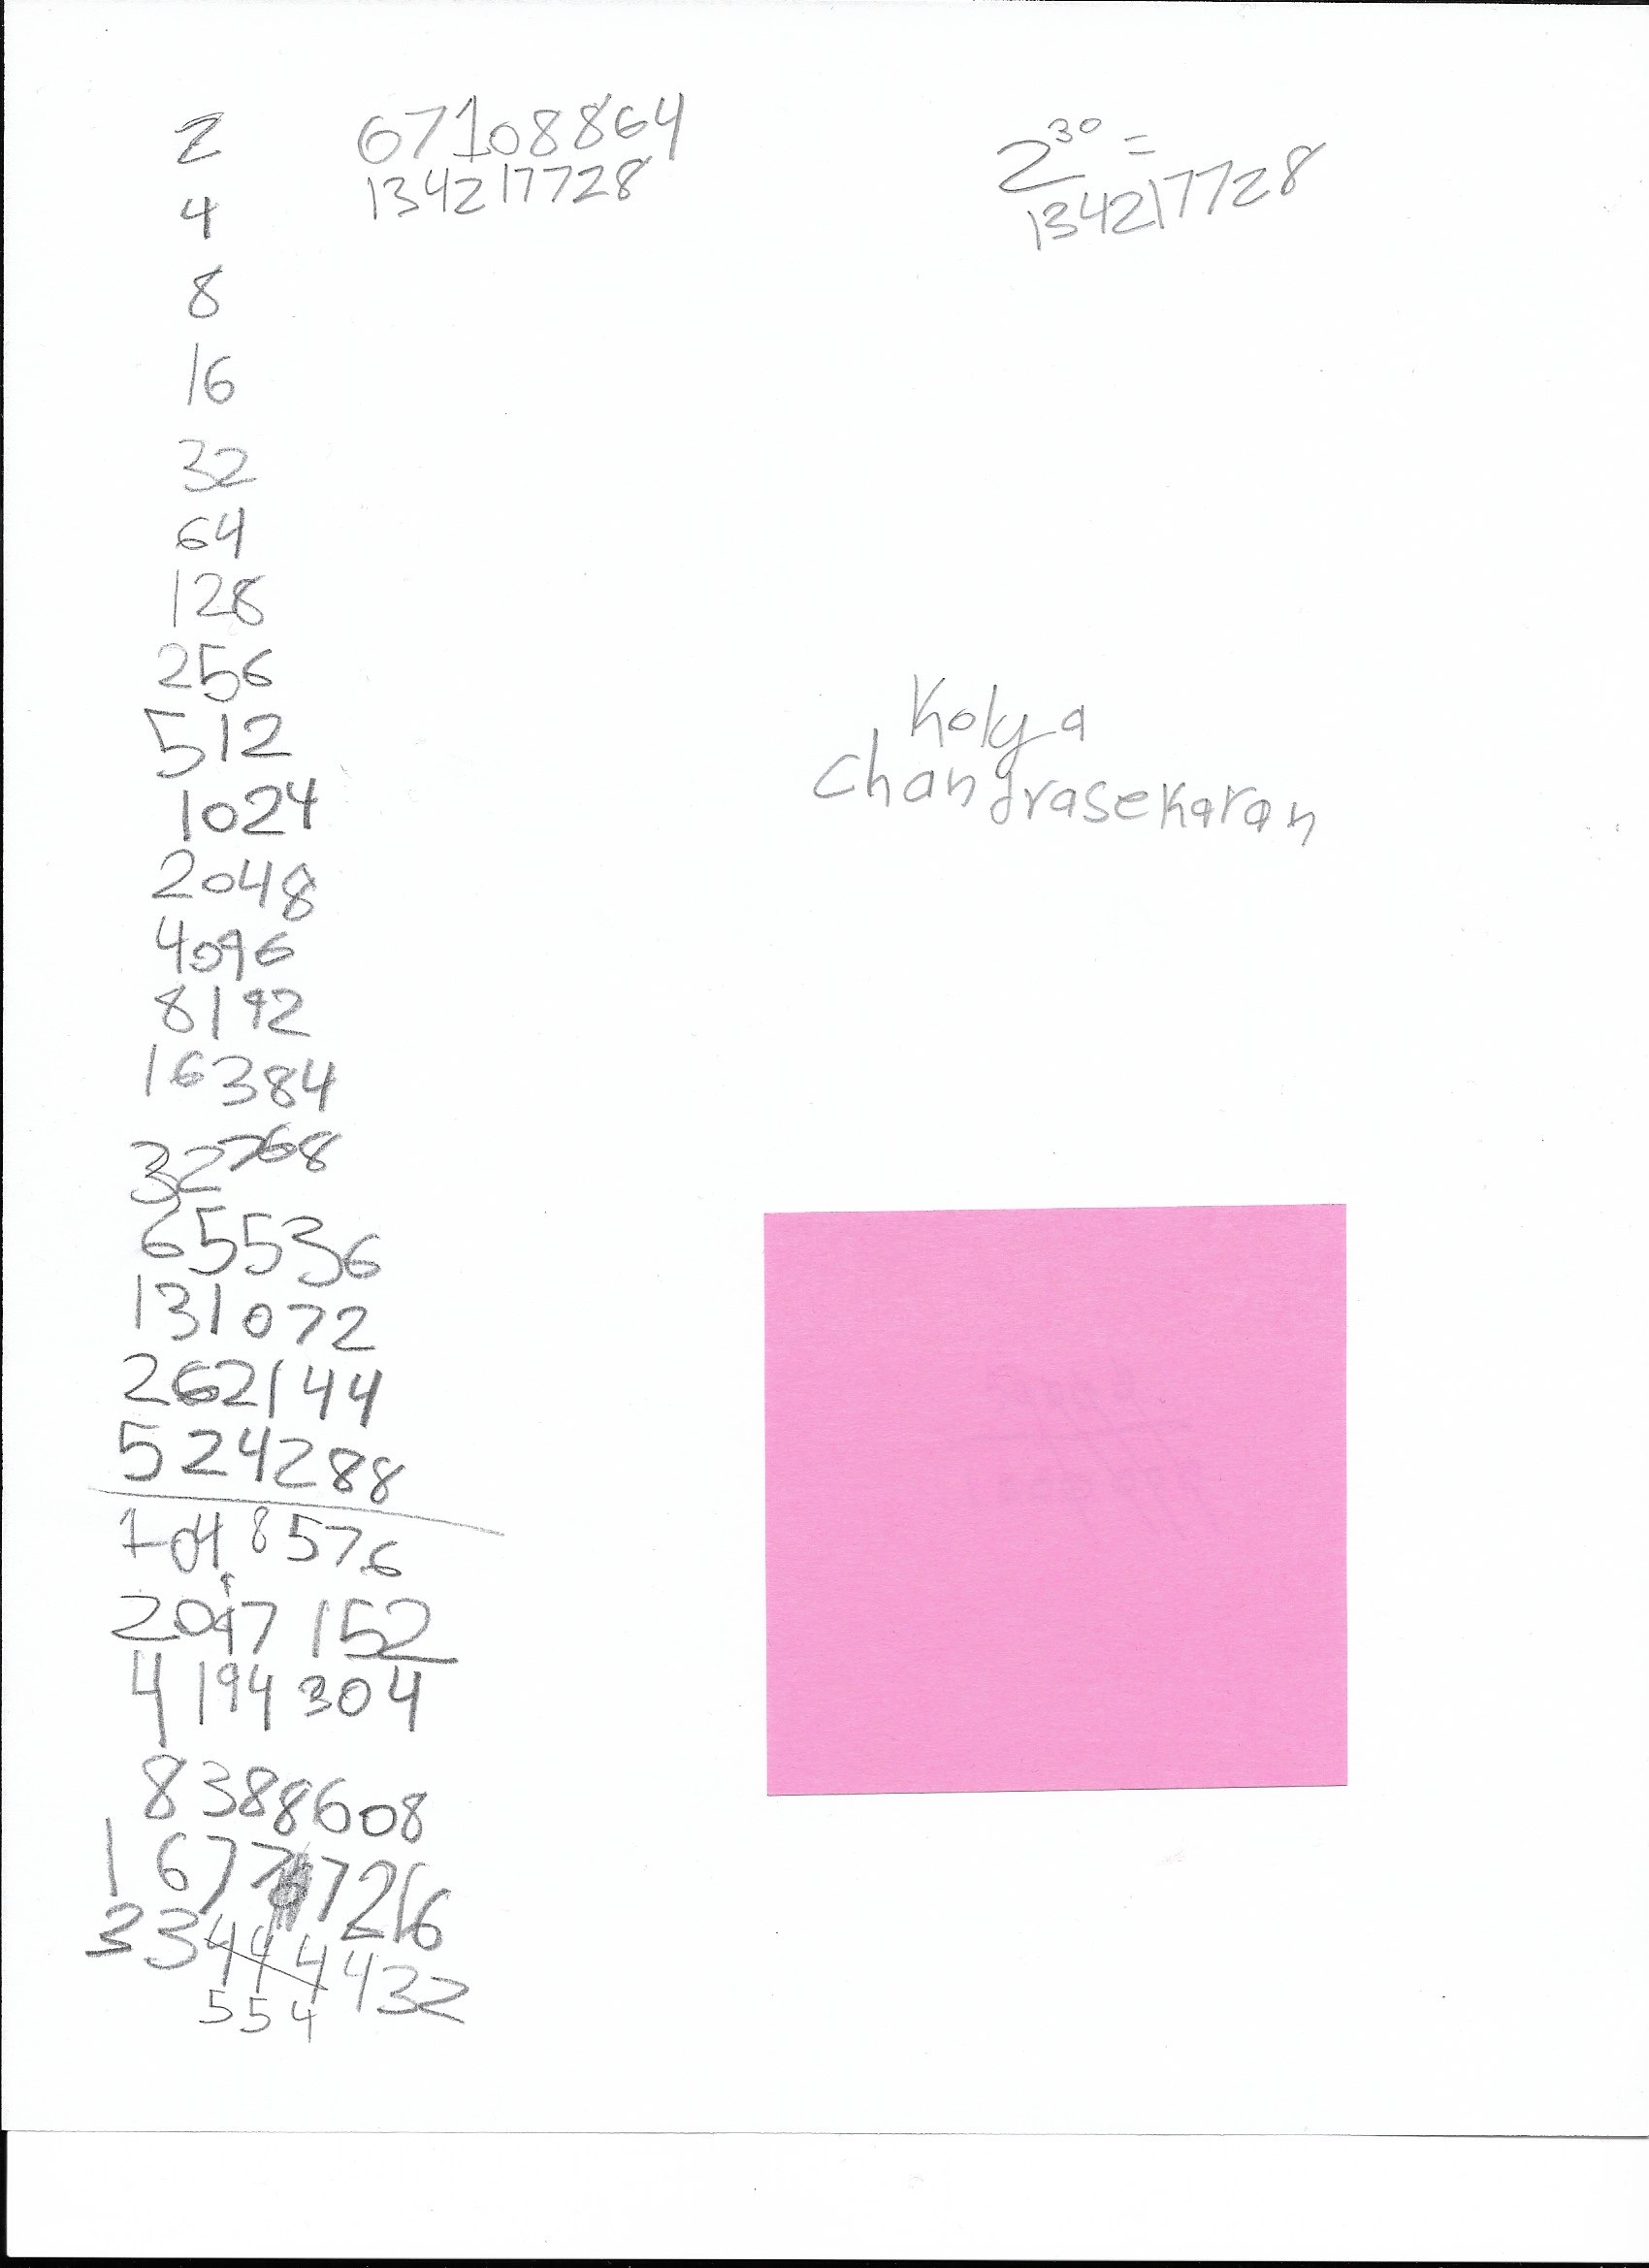 2
4
8
16
32
64
128
256
512
1024
2048
4096
8192
16384
32768
65536
131072
262144
524288
1048576
2097152
4194304
8388608
16777216
33444432
554
67108864
134217728
2^30 =
134217728
Kolya
Chandrasekaran